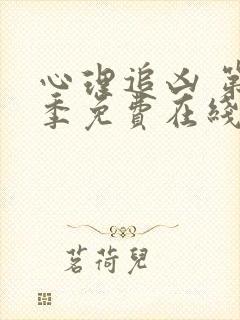 心理追凶 第
季免費在綫
茗荷兒